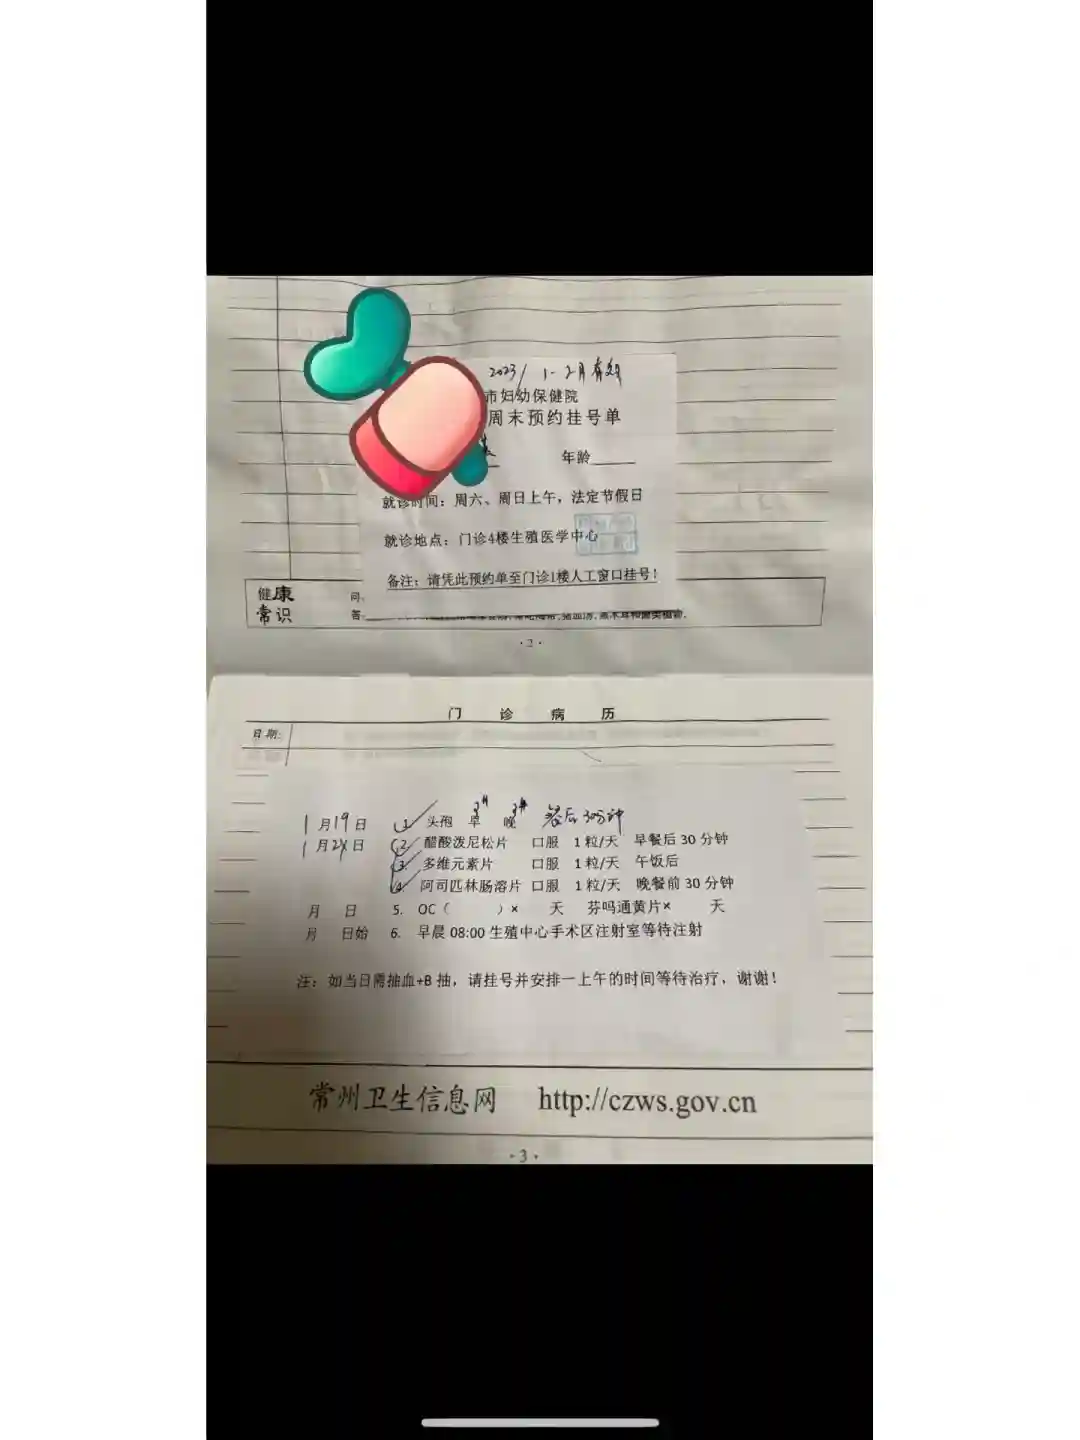 2023/ 1-2月有效
市妇幼保健院
周末预约挂号单
年龄
就诊时间：周六、周日上午，法定节假日
就诊地点：门诊4楼生殖医学中心
备注：请凭此预约单至门诊1楼人工窗口挂号！
健康
常识
问:
答:
·2·
门 诊 病 历
日期:
1月19日 1. 头孢 早 晚 餐后30分钟
1月2日 2. 醋酸泼尼松片 口服 1粒/天 早餐后30分钟
3. 多维元素片 口服 1粒/天 午饭后
4. 阿司匹林肠溶片 口服 1粒/天 晚餐前30分钟
月 日 5. OC（ ）× 天 芬吗通黄片× 天
月 日始 6. 早晨 08:00 生殖中心手术区注射室等待注射
注：如当日需抽血+B 抽，请挂号并安排一上午的时间等待治疗，谢谢！
常州卫生信息网 http://czws.gov.cn
·3·